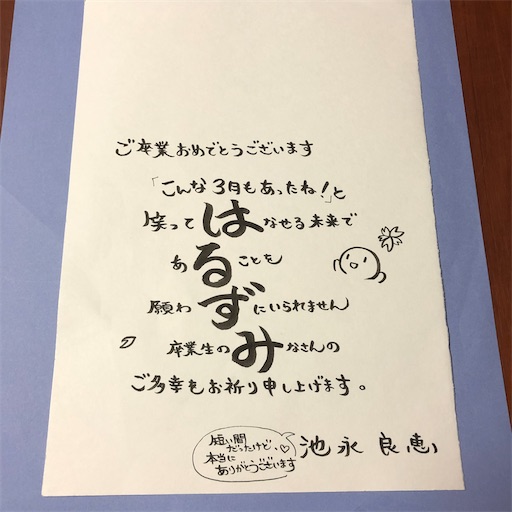 ご卒業おめでとうございます
「こんな3月もあったね!」と
笑ってはなせる未来で
あることを
願わずにいられません
卒業生のみなさんの
ご多幸をお祈り申し上げます。
短い間
だったけど、
本当に♡
ありがとうございます
池永良恵